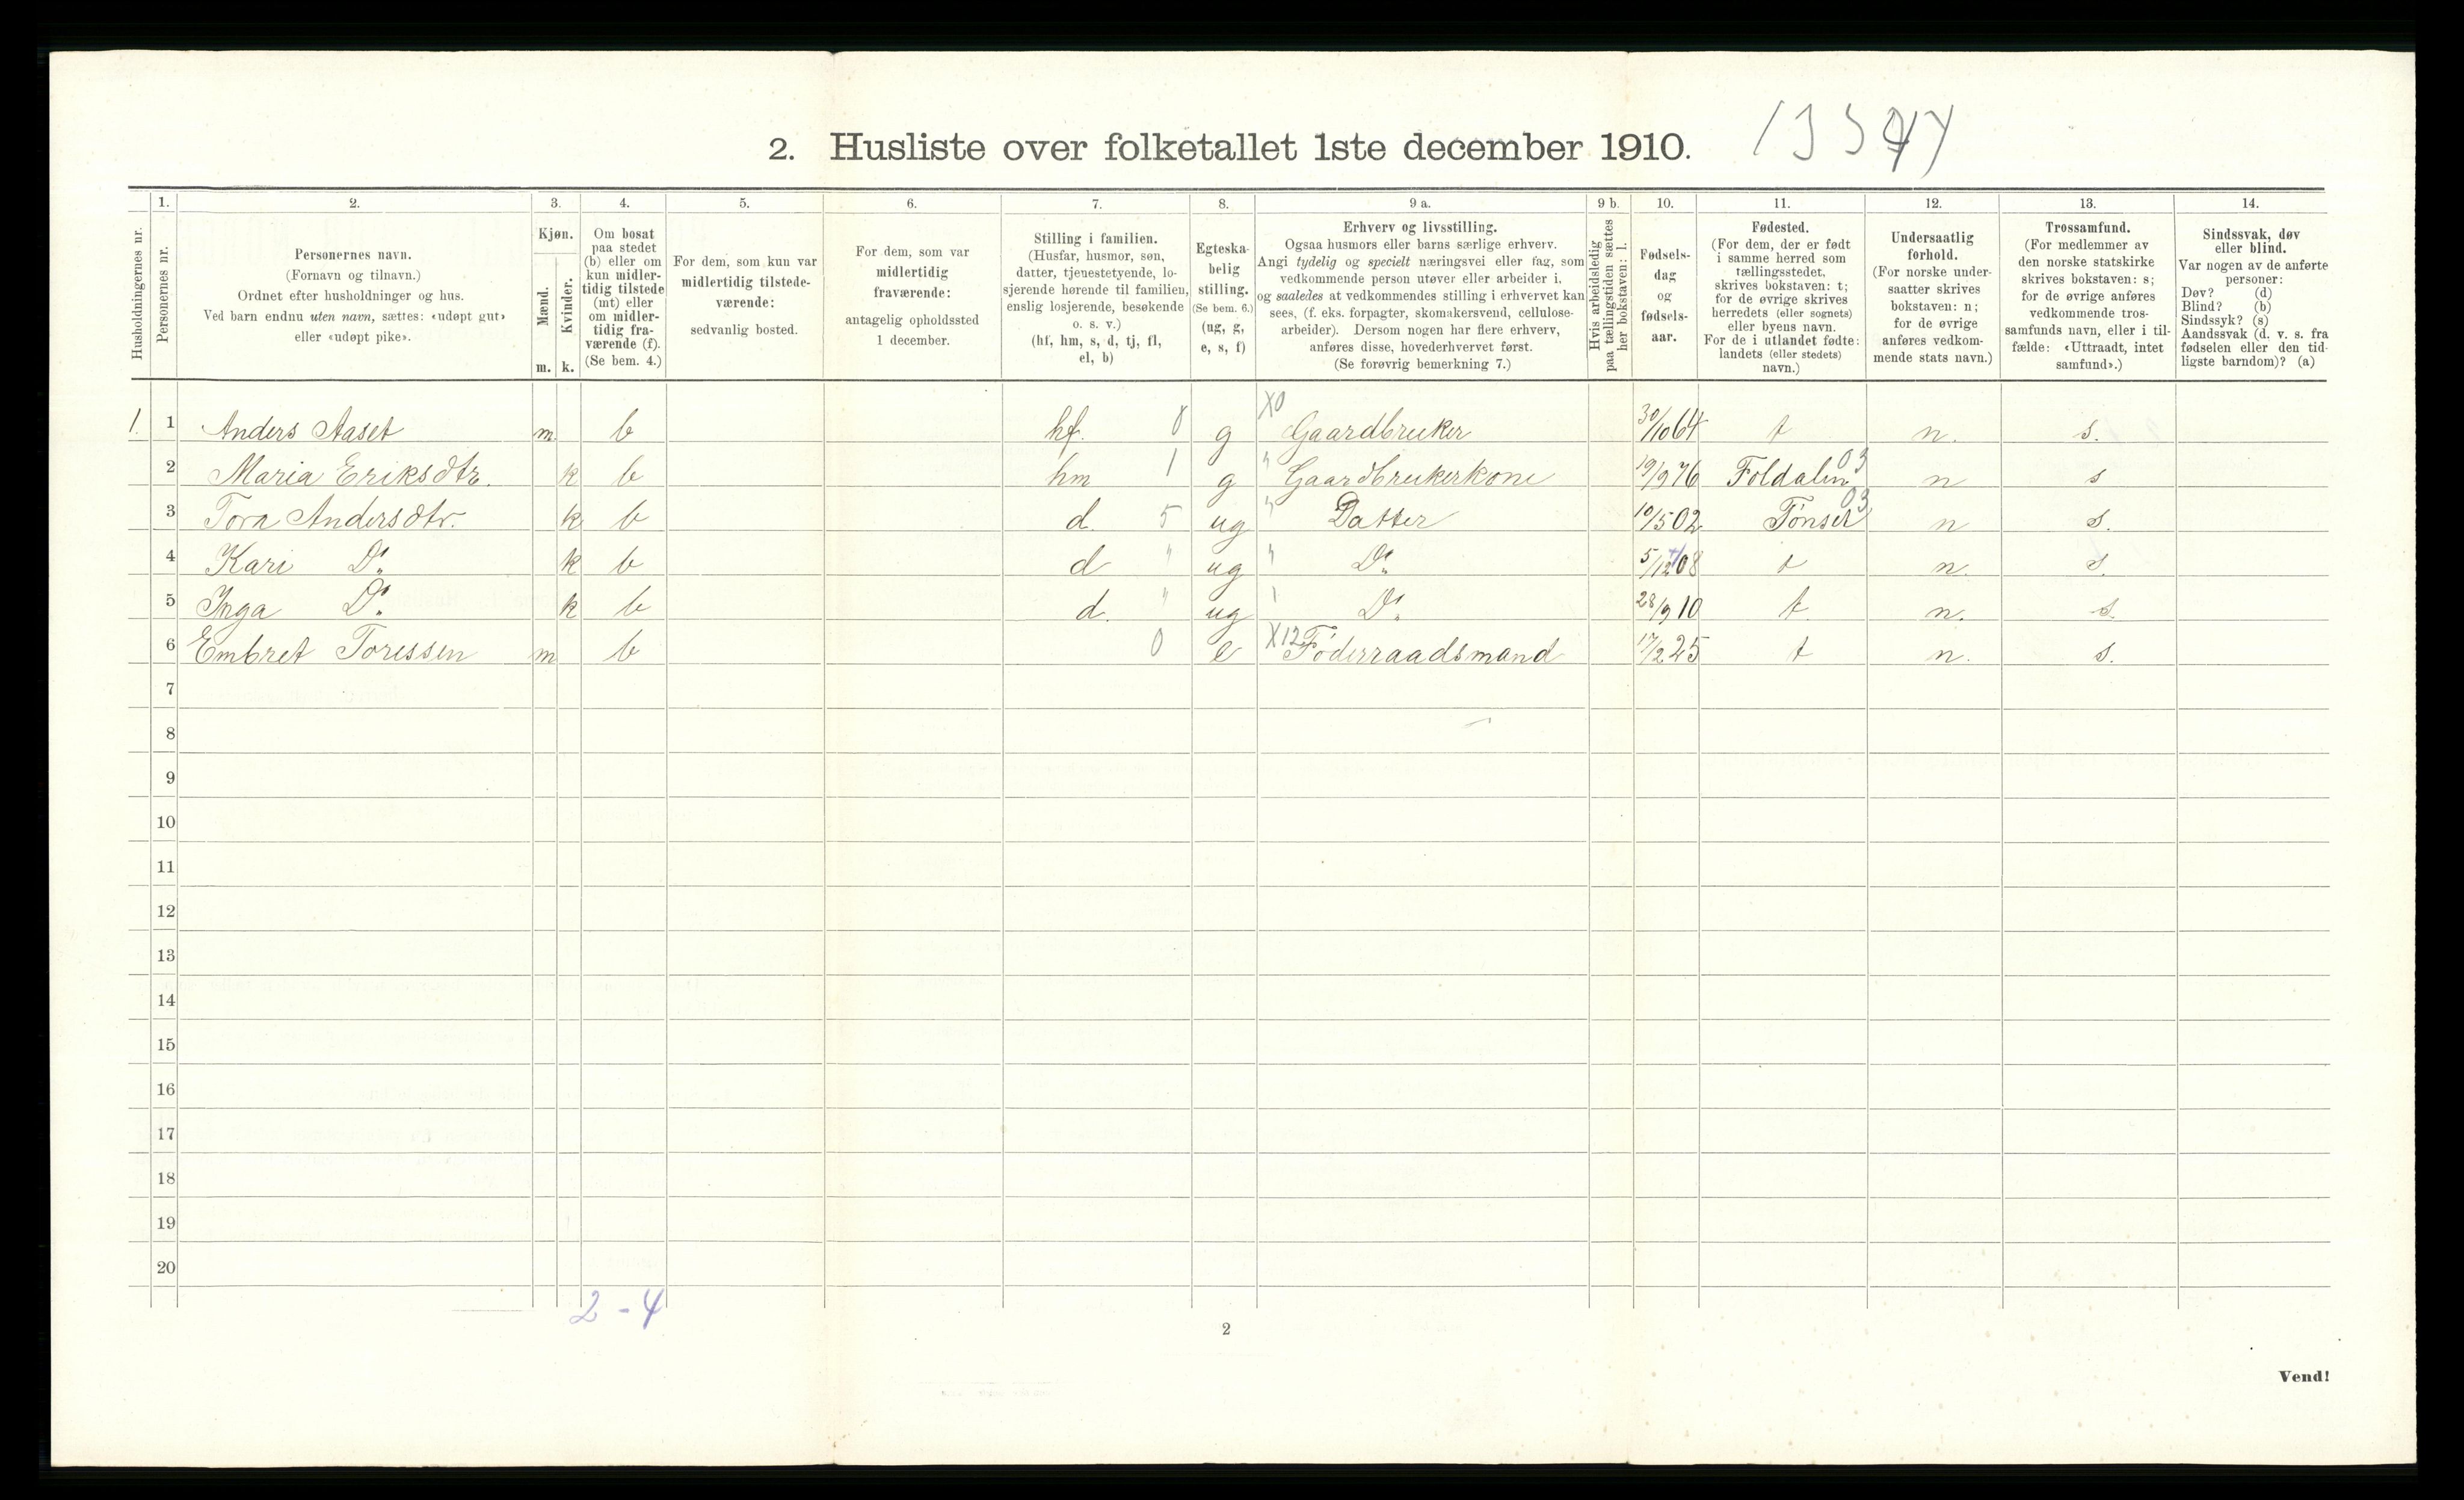 2. Husliste over folketallet 1ste december 1910.
1. 2. 3. 4. 5. 6. 7. 8. 9 a. 9 b. 10. 11. 12. 13. 14.
Husholdningernes nr.
Personernes nr.
Personernes navn.
(Fornavn og tilnavn.)
Ordnet efter husholdninger og hus.
Ved barn endnu uten navn, sættes: «udøpt gut»
eller «udøpt pike».
Kjøn.
Mænd.
Kvinder.
m. k.
Om bosat
paa stedet
(b) eller om
kun midler-
tidig tilstede
(mt) eller
om midler-
tidig fra-
værende (f).
(Se bem. 4.)
For dem, som kun var
midlertidig tilstede-
værende:
sedvanlig bosted.
For dem, som var
midlertidig
fraværende:
antagelig opholdssted
1 december.
Stilling i familien.
(Husfar, husmor, søn,
datter, tjenestetyende, lo-
sjerende hørende til familien,
enslig losjerende, besøkende
o. s. v.)
(hf, hm, s, d, tj, fl,
el, b)
Egteska-
belig
stilling.
(Se bem. 6.)
(ug, g,
e, s, f)
Erhverv og livsstilling.
Ogsaa husmors eller barns særlige erhverv.
Angi tydelig og specielt næringsvei eller fag, som
vedkommende person utøver eller arbeider i,
og saaledes at vedkommendes stilling i erhvervet kan
sees, (f. eks. forpagter, skomakersvend, cellulose-
arbeider). Dersom nogen har flere erhverv,
anføres disse, hovederhvervet først.
(Se forøvrig bemerkning 7.)
Hvis arbeidsledig
paa tællingstiden sættes
her bokstaven: l.
Fødsels-
dag
og
fødsels-
aar.
Fødested.
(For dem, der er født
i samme herred som
tællingsstedet,
skrives bokstaven: t;
for de øvrige skrives
herredets (eller sognets)
eller byens navn.
For de i utlandet fødte:
landets (eller stedets)
navn.)
Undersaatlig
forhold.
(For norske under-
saatter skrives
bokstaven: n;
for de øvrige
anføres vedkom-
mende stats navn.)
Trossamfund.
(For medlemmer av
den norske statskirke
skrives bokstaven: s;
for de øvrige anføres
vedkommende tros-
samfunds navn, eller i til-
fælde: «Uttraadt, intet
samfund».)
Sindssvak, døv
eller blind.
Var nogen av de anførte
personer:
Døv? (d)
Blind? (b)
Sindssyk? (s)
Aandssvak (d. v. s. fra
fødselen eller den tid-
ligste barndom)? (a)
1. 1 Anders Aaset m b hf. 8 g X0 Gaardbruker 30/10 64 t n. s.
2 Maria Eriksdtr. k b hm 1 g " Gaardbrukerkone 19/9 76 Foldalen 03 n s
3 Tora Andersdtr. k b d. 5 ug " Datter 10/5 02 Tønset 03 n s.
4 Kari Do. k b d " ug " Do. 5/12 08 t n. s.
5 Inga Do. k b d. " ug " Do. 28/9 10 t n. s.
6 Embret Toressen m b 0 e X12 Føderraadsmand 17/2 25 t n. s.
7
8
9
10
11
12
13
14
15
16
17
18
19
20
2 - 4
2
Vend!